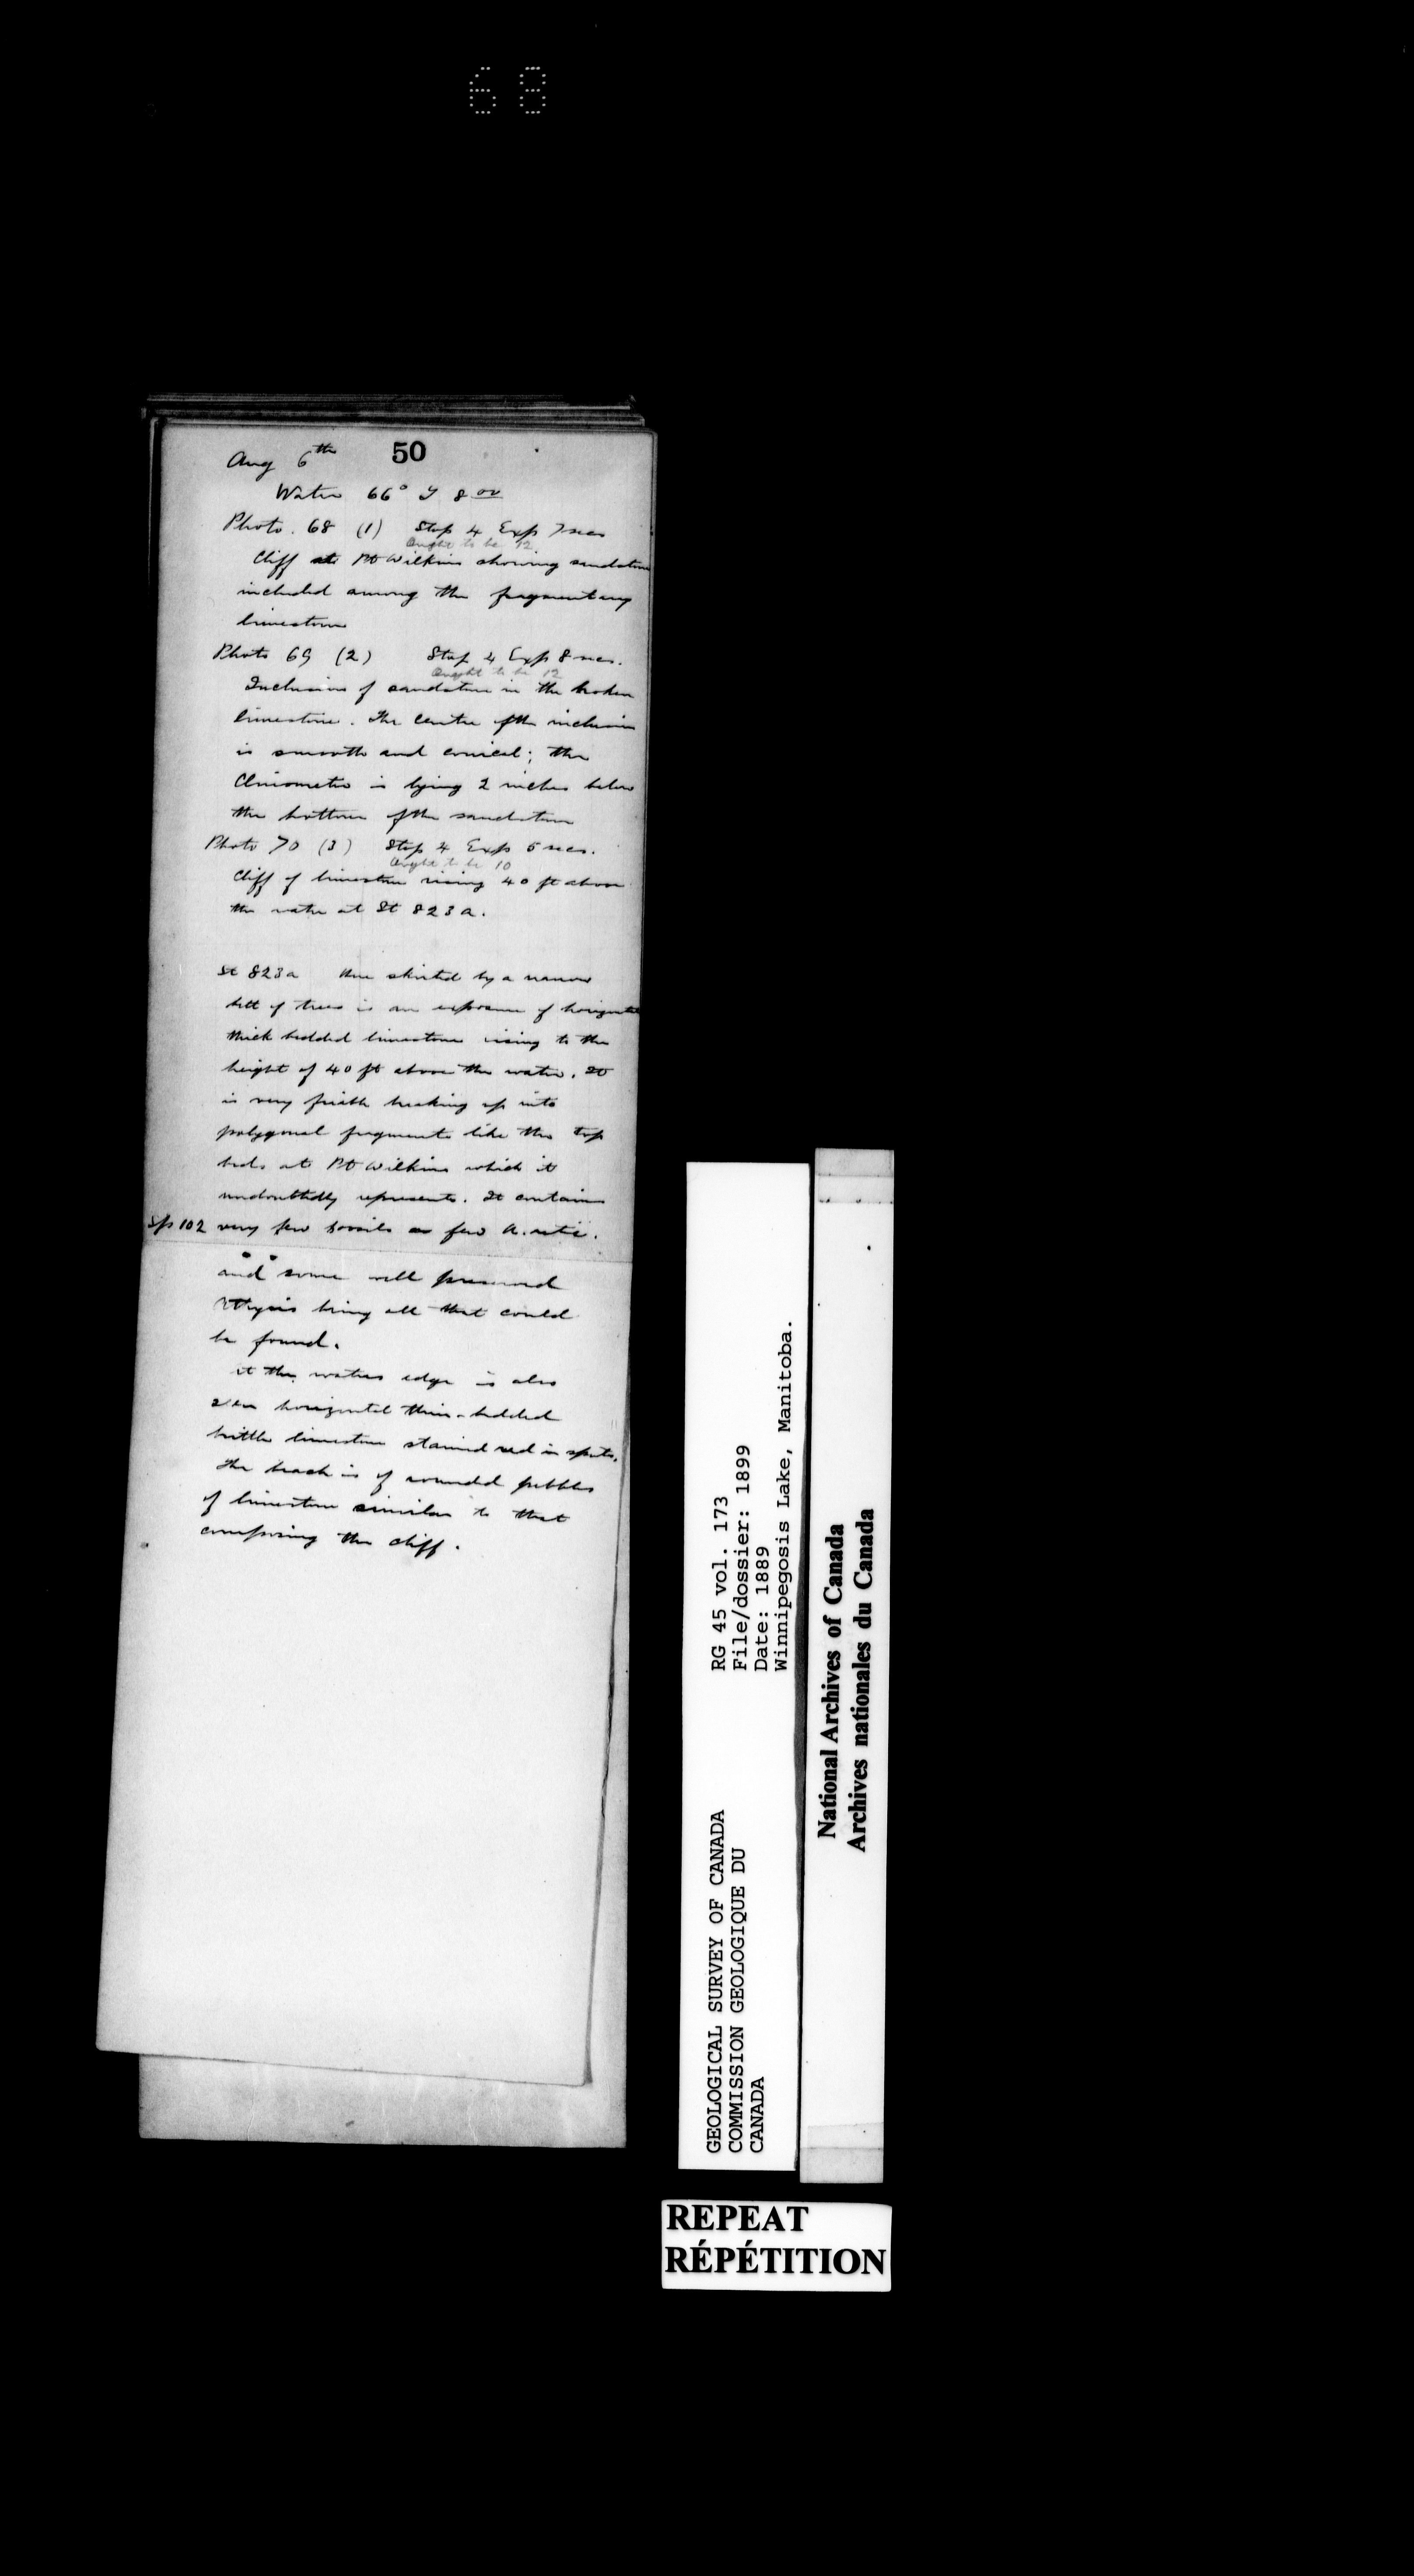 68
50
Aug 6th
Water 66° 8 00
Photo. 68 (1) Stop 4 Exp 7 secs
Ought to be 12
Cliff at Pt Wilkins showing sandstone
included among the fragmentary
limestone
Photo 69 (2) Stop 4 Exp 8 secs.
Ought to be 12
Inclusion of sandstone in the broken
limestone. The centre of the inclusion
is smooth and conical; the
Clinometer is lying 2 inches below
the bottom of the sandstone
Photo 70 (3) Stop 4 Exp 5 secs.
Ought to be 10
Cliff of limestone rising 40 ft above
the water at St 823a.
St 823a Here skirted by a narrow
belt of trees is an exposure of horizontal
thick bedded limestone rising to the
height of 40 ft above the water. It
is very friable breaking up into
polygonal fragments like the top
beds at Pt Wilkins which it
undoubtedly represents. It contains
Sp 102 very few fossils a few A. reti.
and some well preserved
Athyris being all that could
be found.
At the waters edge is also
seen horizontal thin-bedded
brittle limestone stained red in spots.
The beach is of rounded pebbles
of limestone similar to that
composing the cliff.
GEOLOGICAL SURVEY OF CANADA
COMMISSION GEOLOGIQUE DU
CANADA
RG 45 vol. 173
File/dossier: 1899
Date: 1889
Winnipegosis Lake, Manitoba.
National Archives of Canada
Archives nationales du Canada
REPEAT
RÉPÉTITION